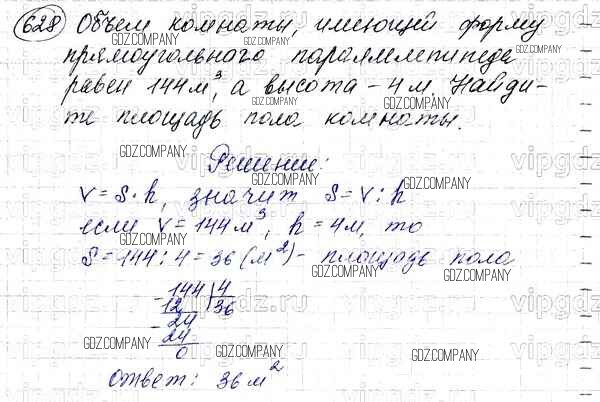 628 Объем комнаты, имеющей форму
прямоугольного параллелепипеда
равен 144 м³, а высота - 4 м. Найди-
те площадь пола комнаты.
Решение:
V = S · h, значит S = V : h
если V = 144 м³, h = 4 м, то
S = 144 : 4 = 36 (м²) - площадь пола
144 | 4
- 12 | 36
24
- 24
0
Ответ: 36 м²
GDZ.COMPANY
vipgdz.ru